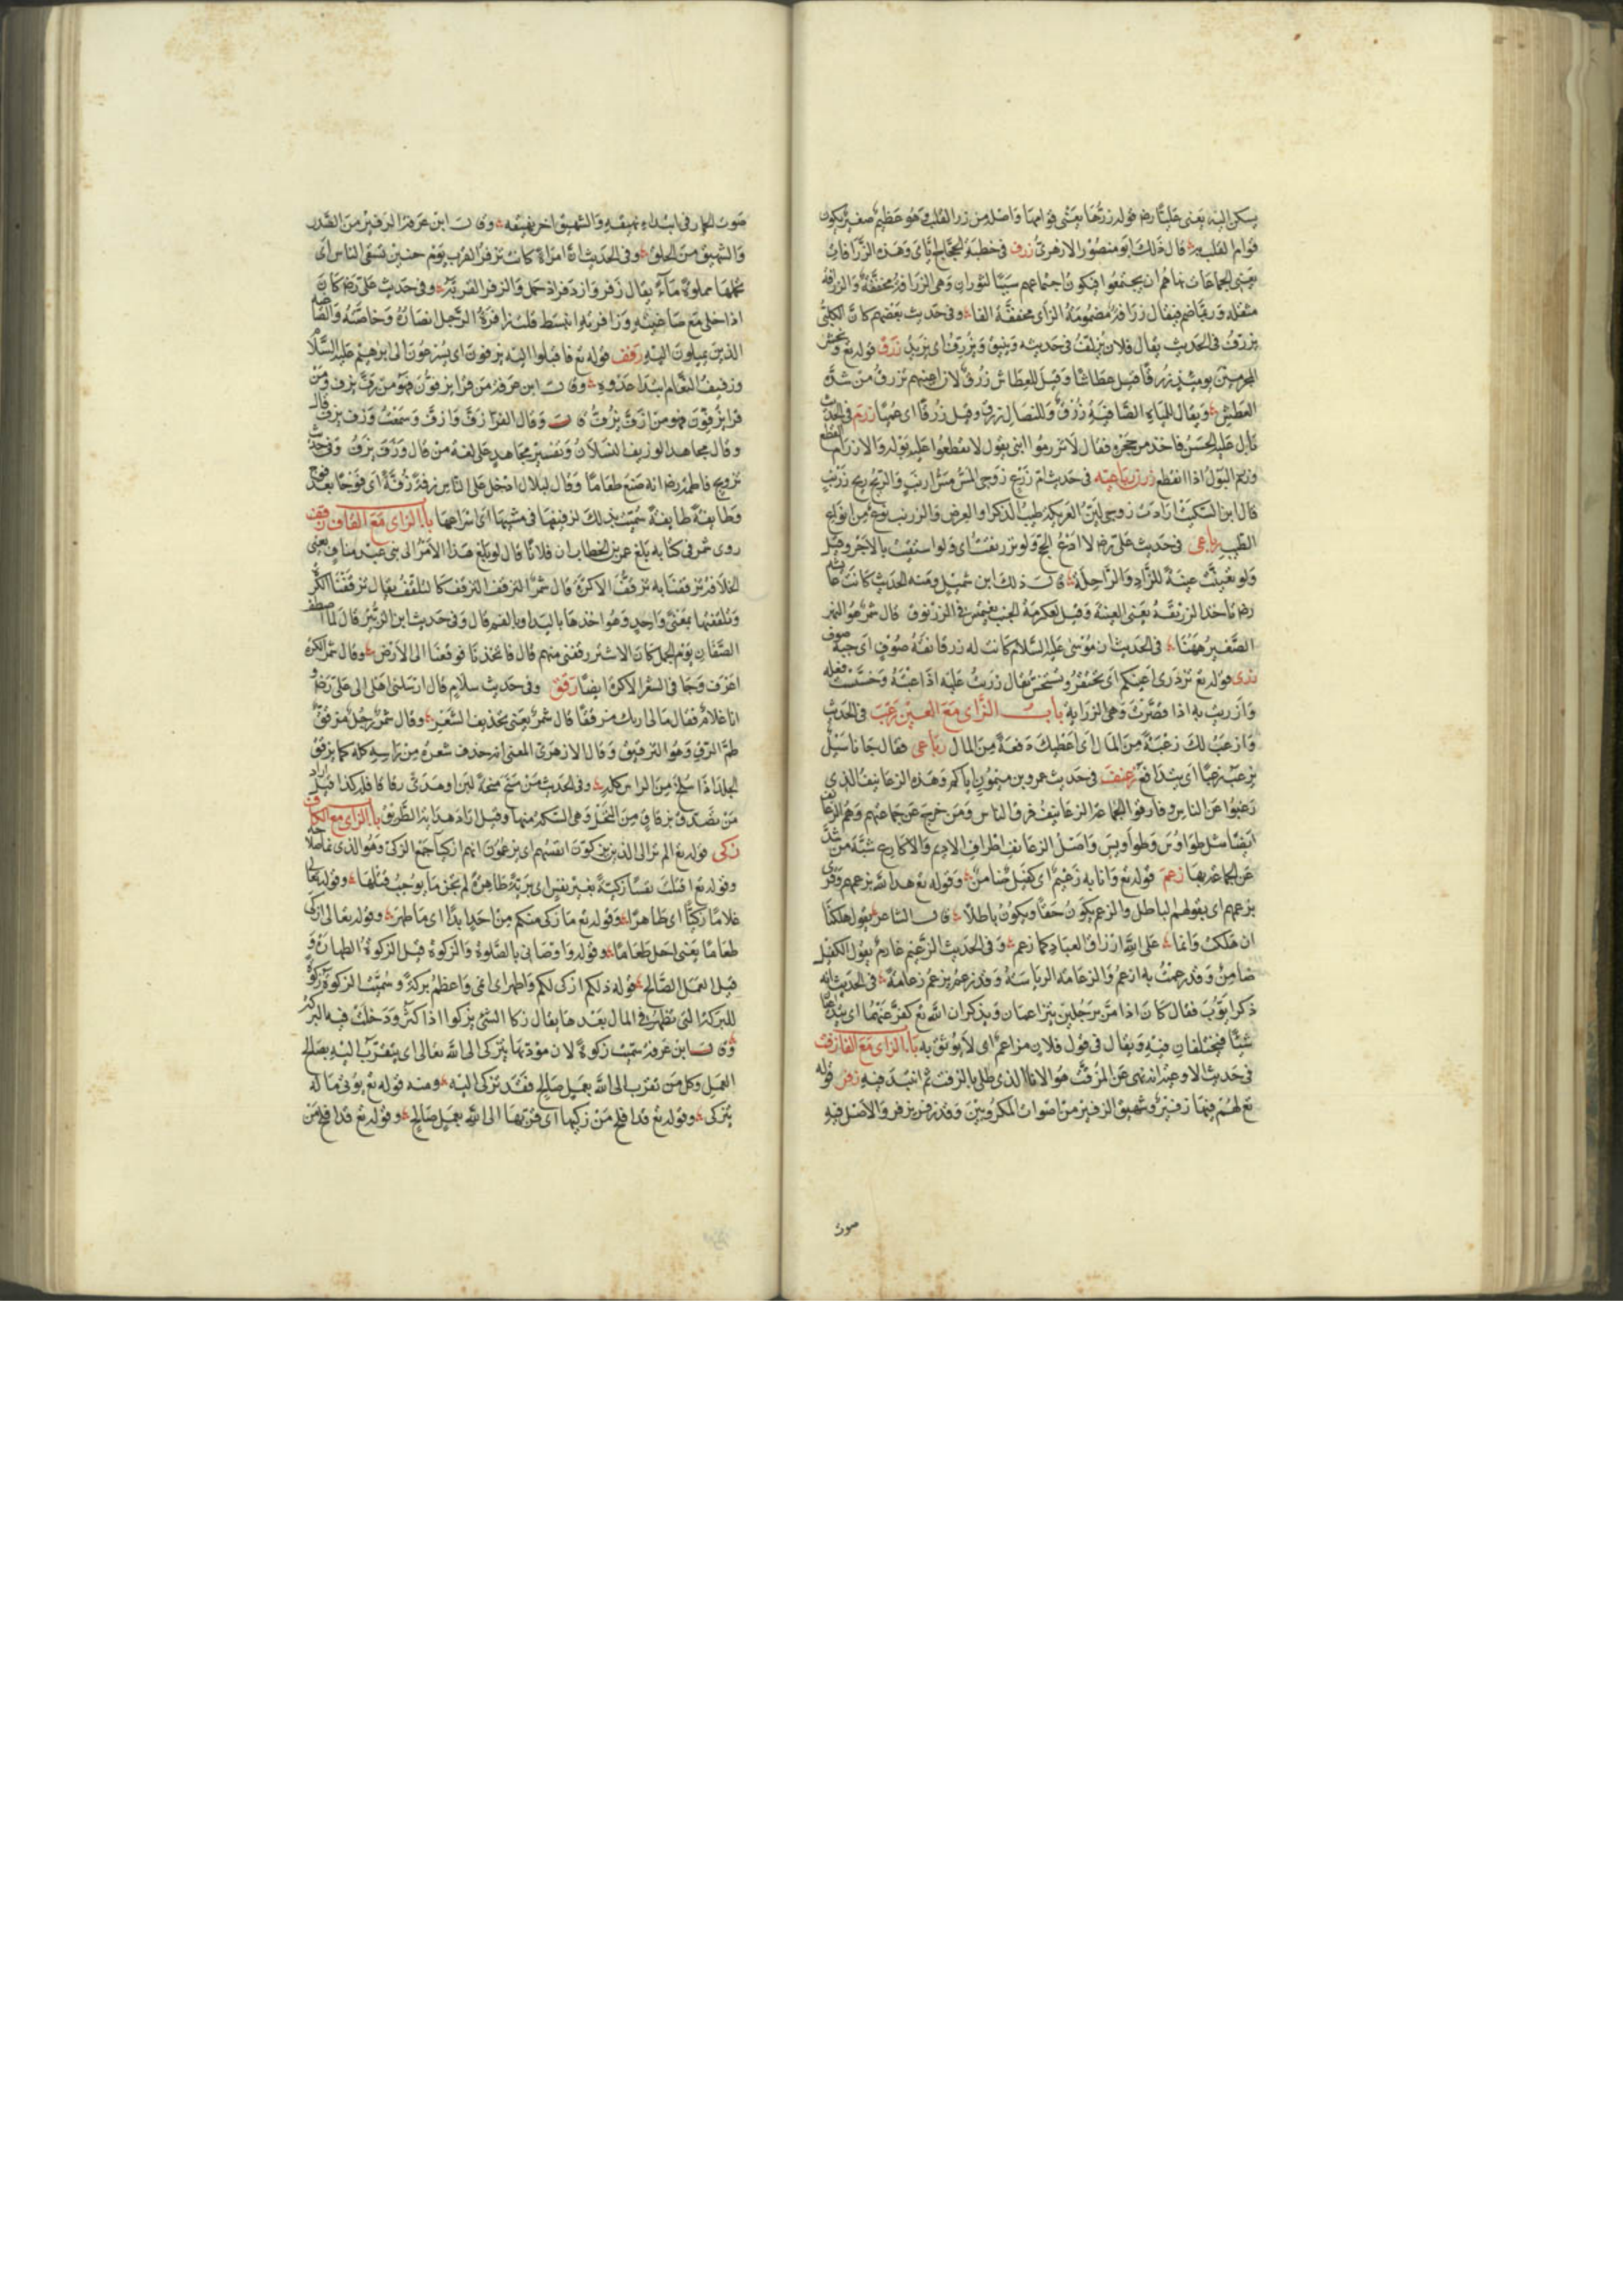 يسكن اليه يعني عليا رضه قوله زرها يعني قوامها واصله من زر القلب وهو عظيم صغير يكون
قوام القلب به قال ذلك ابو منصور الازهري زرف في خطبة الحجاج اياي وهذه الزرافات
يعني الجماعات نهاهم ان يجتمعوا فيكون اجتماعهم سببا لثوران وهي الزرافة مخففة والزرافة
مثقلة وربما ضم فيقال زرافة مضمومة الزاي مخففة الفا وفي حديث بعضهم كان الكلبي
يزرف في الحديث يقال فلان يزلف في حديثه وينيق ويزرف اي يزيد زرق قوله تع ونحشر
المجرمين يومئذ زرقا قيل عطاشا وقيل للعطاش زرق لان اعينهم تزرق من شدة
العطش ويقال للمياه الصافية زرق وللنصال زرق وقيل زرقا اي عميا زرم في الحديث
بال عليه الحسن فاخذ من حجره فقال لا تزرموا ابني يقول لا تقطعوا عليه بوله والازرام القطع
وزرم البول اذا انقطع زرنب رباعيه في حديث ام زرع زوجي المس مس ارنب والريح ريح زرنب
قال ابن السكيت ارادت زوجي لين العريكة طيب الذكر او العرض والزرنب نوع من انواع
الطيب رباعي في حديث علي رضه لا ادع الحج ولو تزرنقت اي ولو استقيت بالاجر وقيل
ولو تعينت عينة للزاد والراحلة قال ذلك ابن شميل ومنه الحديث كانت عايشة
رضه تاخذ الزرنقة يعني العينة وقيل لعكرمة الجنب يغتمس في الزرنوق قال شمر هو النهر
الصغير ههنا في الحديث ان موسى عليه السلام كانت له زرمانقة صوف اي جبة صوف
زري قوله تع تزدري اعينكم اي تحتقر وتستخس يقال زريت عليه اذا عبته وخسست فعله
وازريت به اذا قصرت وهي الزراية باب الزاي مع العين زعب في الحديث
وازعب لك زعبة من المال اي اعطيك دفعة من المال رباعي فقال جانا سيل
يزعب زعبا اي يتدافع زعنف في حديث عمرو بن ميمون اياكم وهذه الزعانيف الذين
رغبوا عن الناس وفارقوا الجماعة الزعانيف فرق الناس ومن خرج عن جماعتهم وهم الزعانف
ايضا مثل طواوس وطواويس واصل الزعانف اطراف الاديم والاكارع شبه من شذ
عن الجماعة بها زعم قوله تع وانا به زعيم اي كفيل ضامن وقوله تع هذا لله بزعمهم وقري
بزعمهم اي بقولهم الباطل والزعم يكون حقا ويكون باطلا قال الشاعر يقول هلكنا
ان هلكت وانما على الله ارزاق العباد كما زعم وفي الحديث الزعيم غارم يقول الكفيل
ضامن وقد زعمت به ازعم والزعامة الرياسة وقد زعم يزعم زعامة في الحديث انه
ذكر ايوب فقال كان اذا مر برجلين يتزاعمان ويذكران الله تع كفر عنهما اي يتداعيان
شيئا فيختلفان فيه ويقال في قول فلان مزاعم اي لا يوثق به باب الزاي مع الفا زفت
في حديث الاوعية انه نهى عن المزفت هو الانا الذي طلي بالزفت ثم انتبذ فيه زفر قوله
تع لهم فيها زفير وشهيق الزفير من اصوات المكروبين وقد زفر يزفر والاصل فيه
صوت
صوت الحمار في ابتداء نهيقه والشهيق اخر نهيقه وقال ابن عرفة الزفير من الصدر
والشهيق من الحلق وفي الحديث ان امراة كانت تزفر القرب يوم حنين تسقي الناس اي
تحملها مملوة ماء يقال زفر وازدفر اذا حمل والزفر القربة وفي حديث علي رضه كان
اذا خلى مع صاغيته وزافرته انبسط قلت زافرة الرجل انصاره وخاصته والصاغية
الذين يميلون اليه زفف قوله تع فاقبلوا اليه يزفون اي يسرعون الى ابرهيم عليه السلام
وزفيف النعام ابتدا عدوه وقال ابن عرفة من قرا يزفون فهو من زف يزف ومن
قرا يزفون فهو من ازف يزف قال وقال الفرا زف وازف وسمعت وزف يزف قال
وقال مجاهد الوزيف النسلان وتفسير مجاهد على لغة من قال وزف يزف وفي حديث
تزويج فاطمة رضه انه صنع طعاما وقال لبلال ادخل علي الناس زفة زفة اي فوجا بعد فوج
وطايفة طايفة سميت بذلك لزفيفها في مشيها اي اسراعها باب الزاي مع القاف زقف
روى شمر في كتابه بلغ عمر بن الخطاب ان فلانا قال لو بلغ هذا الامر الى بني عبد مناف يعني
الخلافة تزقفناه تزقف الاكرة قال شمر التزقف كالتلقف يقال تزقفت الكرة
وتلقفتها بمعنى واحد وهو اخذها باليد او بالفم قال وفي حديث ابن الزبير قال لما اصطف
الصفان يوم الجمل كان الاشتر زقفني منهم قال فاتخذنا فوقعنا الى الارض وقال شمر الكرة
اعرف وجا في الشعر الاكرة ايضا زقق وفي حديث سلام قال ارسلني اهلي الى علي رضه و
انا غلام فقال ما لي اراك مزققا قال شمر يعني تحذيف الشعر وقال شمر رجل مزقق
طم الزق وهو التزقيق وقال الازهري المعنى انه حذف شعره من راسه كله كما يزقق
الجلد اذا سلخ من الراس كله وفي الحديث من منح منحة لبن او هدى زقاقا فله كذا قيل اراد
من تصدق بزقاق من النخل وهي السكة منها وقيل اراد هداية الطريق باب الزاي مع الكاف
زكى قوله تع الم تر الى الذين يزكون انفسهم اي يزعمون انهم ازكياء جمع الزكى وهو الذي نما صلاحه
وقوله تع اقتلت نفسا زكية بغير نفس اي برية ظاهرة لم تجن ما يوجب قتلها وقوله تعالى
غلاما زكيا اي طاهرا وقوله تع ما زكى منكم من احد ابدا اي ما طهر وقوله تعالى ازكى
طعاما يعني احل طعاما وقوله واوصاني بالصلوة والزكوة قيل الزكوة الطهارة و
قيل العمل الصالح قوله ذلكم ازكى لكم واطهر اي انمى واعظم بركة وسميت الزكوة زكوة
للبركة التي تظهر في المال بعدها يقال زكا الشئ يزكوا اذا كثر ودخلت فيه البركة
وقال ابن عرفة سميت زكوة لان مؤديها يتزكى الى الله تعالى اي يتقرب اليه بصالح
العمل وكل من تقرب الى الله بعمل صالح فقد تزكى اليه ومنه قوله تع يؤتي ماله
يتزكى وقوله تع قد افلح من زكيها اي قربها الى الله بعمل صالح وقوله تع قد افلح من